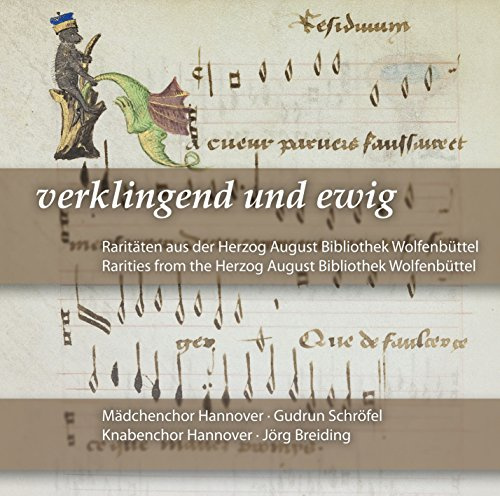 Residuum
A cueur parvers faulsaire et
verklingend und ewig
Raritäten aus der Herzog August Bibliothek Wolfenbüttel
Rarities from the Herzog August Bibliothek Wolfenbüttel
ger Que de faulce
Mädchenchor Hannover · Gudrun Schröfel
Knabenchor Hannover · Jörg Breiding
ce que